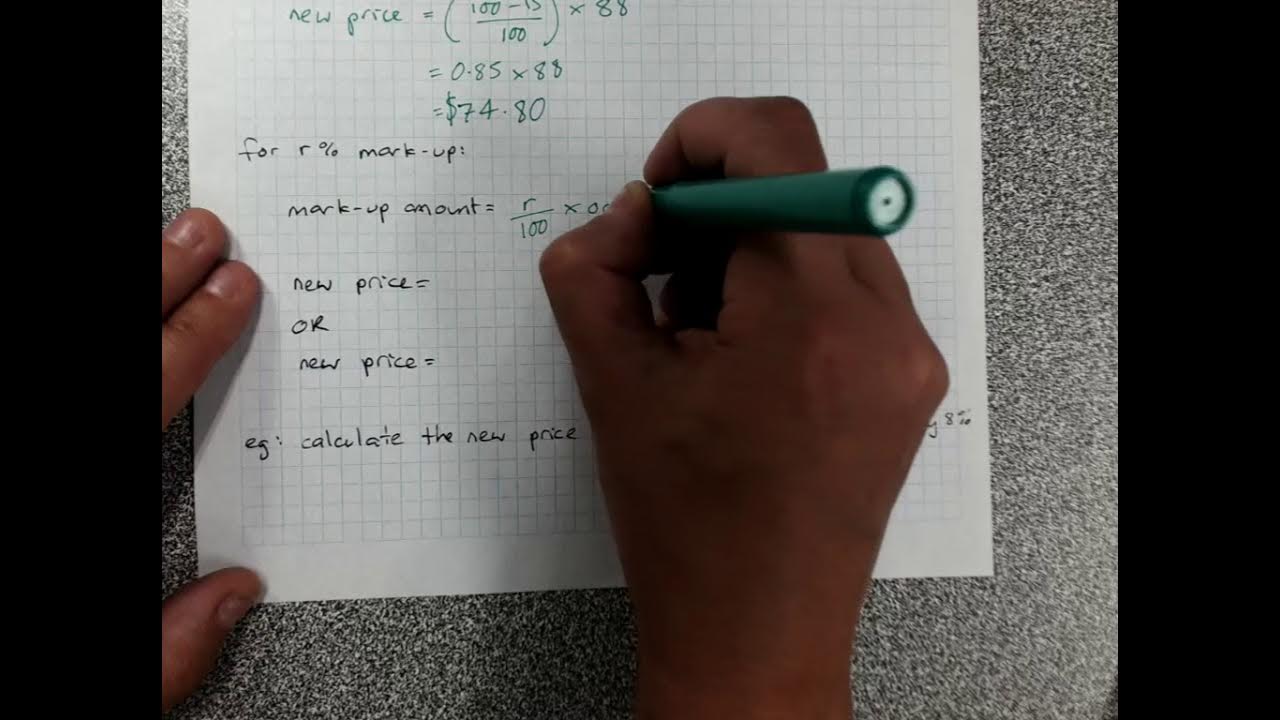 new price = (100-15/100) × 88
= 0.85 × 88
= $74.80
for r% mark-up:
mark-up amount = r/100 ×
new price =
OR
new price =
eg: calculate the new price 8%